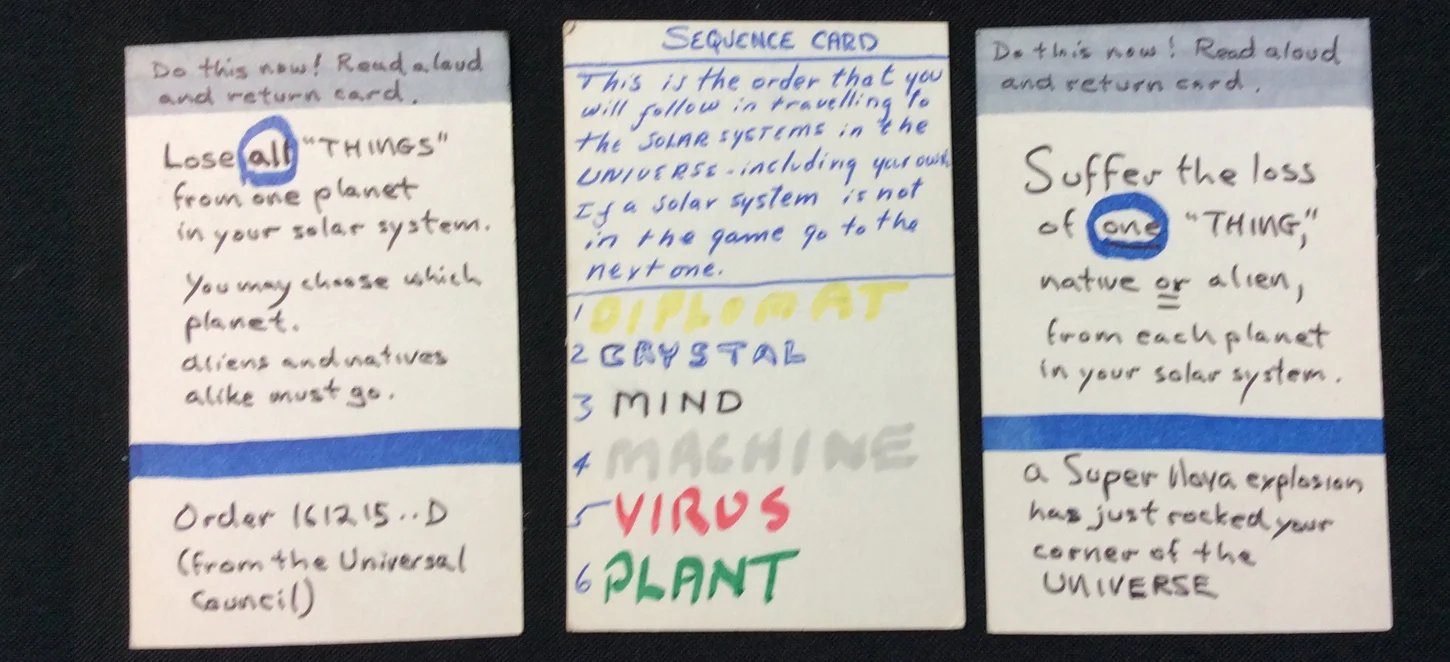 Do this now! Read aloud
and return card.
Lose all "THINGS"
from one planet
in your solar system.
You may choose which
planet.
aliens and natives
alike must go.
Order 161215..D
(from the Universal
Council)
SEQUENCE CARD
This is the order that you
will follow in travelling to
the SOLAR SYSTEMS in the
UNIVERSE - including your own.
If a solar system is not
in the game go to the
next one.
1 DIPLOMAT
2 CRYSTAL
3 MIND
4 MACHINE
5 VIRUS
6 PLANT
Do this now! Read aloud
and return card.
Suffer the loss
of one "THING,"
native or alien,
from each planet
in your solar system.
a Super Nova explosion
has just rocked your
corner of the
UNIVERSE